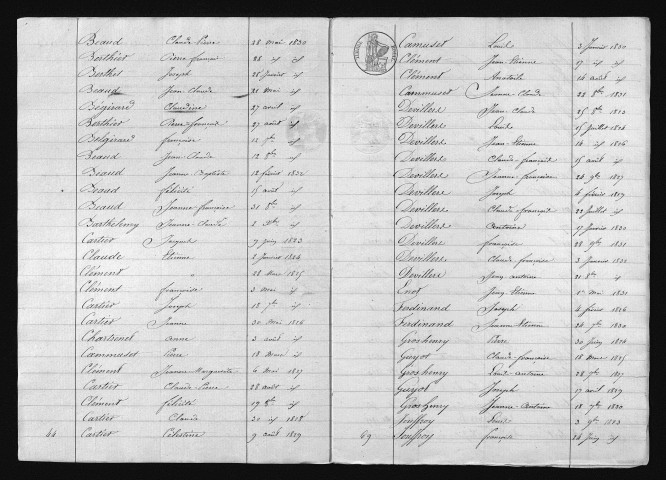 Beaud Claude Pierre 28 Mai 1830
Berthier Pierre françois 28 id id
Berthet Joseph 28 Janvier id
Beaud Jean Claude 28 Mai id
Begirard Claudine 27 août id
Berthier Pierre francois 27 août id
Belgirard françoise 11 7bre id
Beaud Jean Claude 12 8bre id
Beaud Jeanne Baptiste 18 février 1832
Beaud félicité 15 avril id
Beaud Jeanne françoise 31 8bre id
Barthelemy Jeanne Claude 2 Xbre id
Cartier Jacques 7 Juin 1823
Claude Etienne 2 Janvier 1824
Clément " 28 Mai 1825
Clément françoise 3 Mai id
Cartier Joseph 18 7bre id
Cartier Jeanne 30 Mai 1826
Chartrenet anne 3 août id
Cammuset Pierre 18 Mars id
Clément Jeanne Marguerite 4 Mai 1827
Cartier Claude Pierre 28 août id
Clément félicité 19 8bre id
Cartier Claude 30 id 1828
44 Cartier Célestine 9 août 1829
Camuset Louis 3 Janvier 1830
Clément Jean Etienne 27 id id
Clément Anatoile 14 août id
Cammuset Jeanne Claude 28 8bre 1831
Devillers Jean Claude 25 8bre 1823
Devillers Louis 25 Juillet 1824
Devillers Jean Etienne 14 id 1826
Devillers Claude françois 15 août id
Devillers Jeanne françoise 24 9bre 1827
Devillers Joseph 8 février 1829
Devillers Claude françois 22 Juillet id
Devillers Antoine 17 Janvier 1830
Devilline françoise 28 9bre 1831
Devillers Claude françoise 3 Janvier 1830
Devillers Jean antoine 21 8bre id
Enot Jean Etienne 1er Mai 1831
Ferdinand Joseph 4 février 1826
Ferdinand Jeanne Etienne 24 7bre 1830
Groshenry Pierre 30 Juin 1824
Guyot Claude françoise 18 Mars 1825
Groshenry Louis antoine 28 7bre 1827
Guyot Joseph 17 avril 1829
Groshenry Jeanne Antoine 18 7bre 1830
Jouffroy Louis 3 9bre 1823
69 Jouffroy françoise 24 Juin id